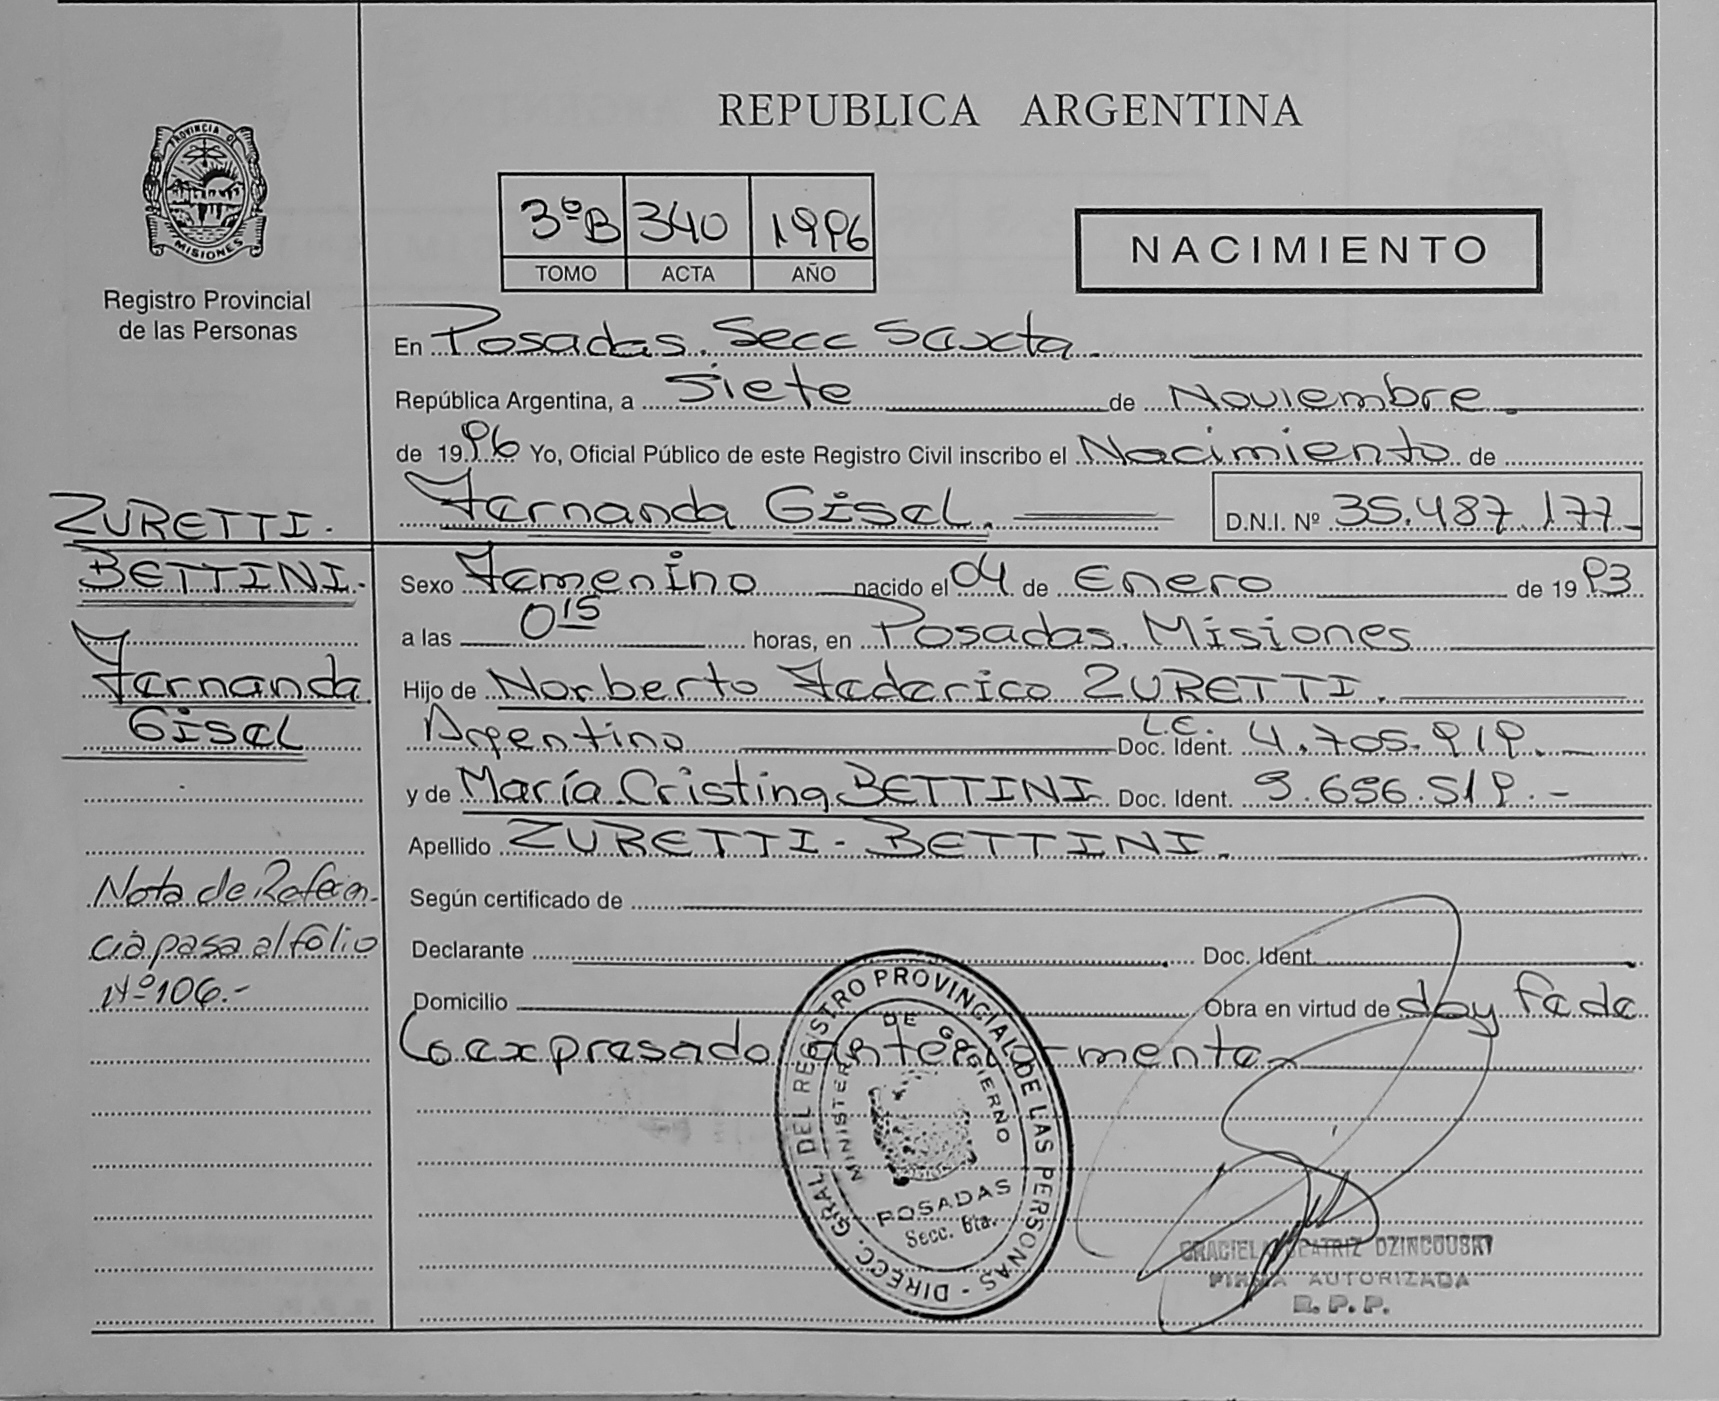 REPUBLICA ARGENTINA
PROVINCIA DE
MISIONES
Registro Provincial
de las Personas
3ºB 340 1996
TOMO ACTA AÑO
NACIMIENTO
En Posadas. Secc Sexta
República Argentina, a Siete de Noviembre
de 1996 Yo, Oficial Público de este Registro Civil inscribo el Nacimiento de
Fernanda Gisel. D.N.I. Nº 35.487.177
ZURETTI.
BETTINI.
Fernanda
Gisel
Sexo Femenino nacido el 04 de Enero de 1993
a las 0 15 horas, en Posadas. Misiones
Hijo de Norberto Federico ZURETTI.
Argentino L.E. Doc. Ident. 4.705.919.
y de María Cristina BETTINI Doc. Ident. 9.696.519.-
Apellido ZURETTI-BETTINI.
Nota de Referen-
cia pasa al folio
Nº 106.-
Según certificado de
Declarante Doc. Ident.
Domicilio Obra en virtud de doy fe de
lo expresado anteriormente
DIRECC. GRAL. DEL REGISTRO PROVINCIAL DE LAS PERSONAS -
MINISTERIO DE GOBIERNO
POSADAS
Secc. 6ta.
GRACIELA BEATRIZ DZINCOUSKY
FIRMA AUTORIZADA
R. P. P.